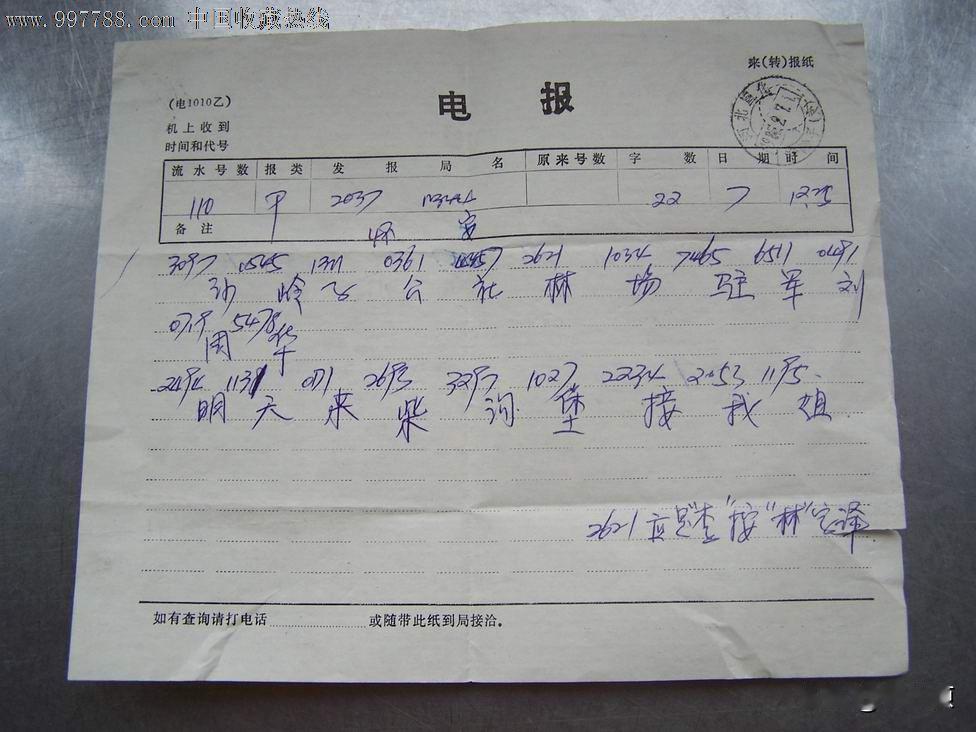 www.997788.com 中国收藏热线
来(转)报纸
(电1010乙)
电 报
机上收到
时间和代号
流水号数 报类 发报局名 原来号数 字数 日期 时间
110 2037 22 7 1225
备注 怀安
3097 0545 0361 2621 1034 7465 6511 0491
沙岭子公社林场驻军刘
0719 5478
周华
2494 1131 2693 3297 1027 2234 2053 1195
明天来柴沟堡接我姐
2621应是"查"按"林"字译
如有查询请打电话 或随带此纸到局接洽。